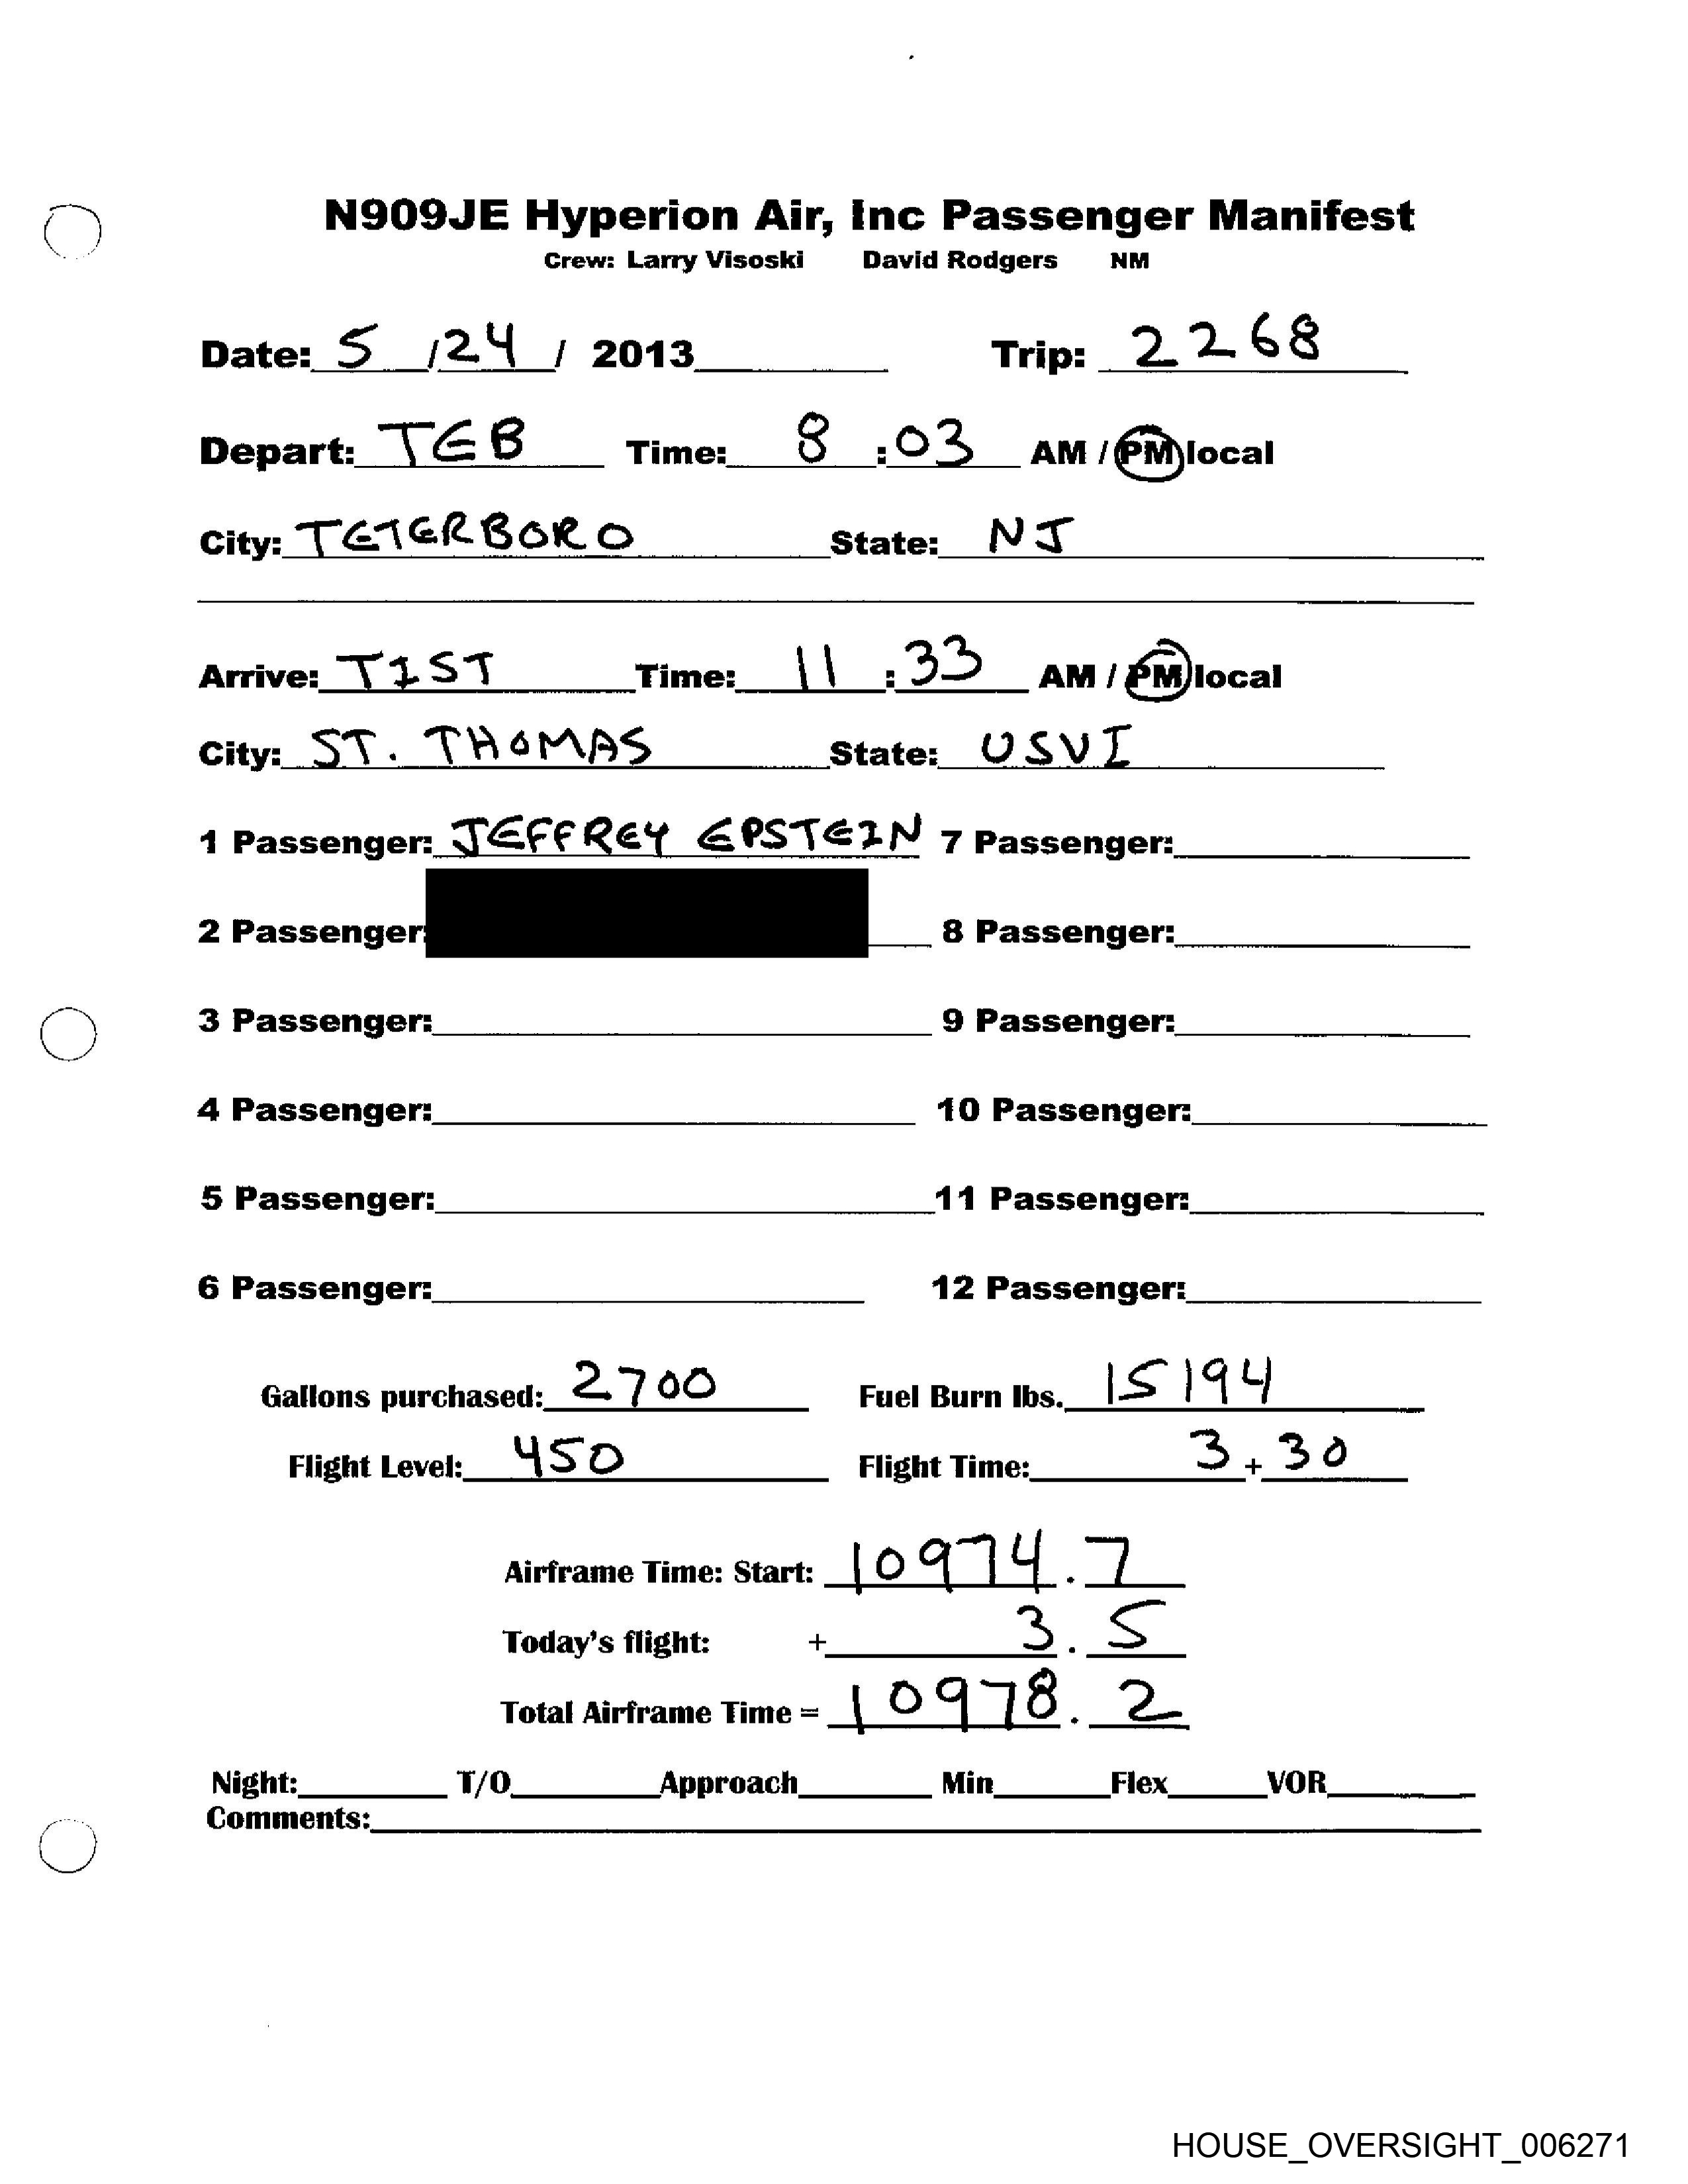 N909JE Hyperion Air, Inc Passenger Manifest
Crew: Larry Visoski David Rodgers NM
Date: 5 / 24 / 2013 Trip: 2268
Depart: TEB Time: 8 : 03 AM / PM local
City: TETERBORO State: NJ
Arrive: TIST Time: 11 : 33 AM / PM local
City: ST. THOMAS State: USVI
1 Passenger: JEFFREY EPSTEIN 7 Passenger:
2 Passenger: 8 Passenger:
3 Passenger: 9 Passenger:
4 Passenger: 10 Passenger:
5 Passenger: 11 Passenger:
6 Passenger: 12 Passenger:
Gallons purchased: 2700 Fuel Burn lbs. 15194
Flight Level: 450 Flight Time: 3 + 30
Airframe Time: Start: 10974.7
Today's flight: + 3.5
Total Airframe Time = 10978.2
Night: T/O Approach Min Flex VOR
Comments:
HOUSE_OVERSIGHT_006271